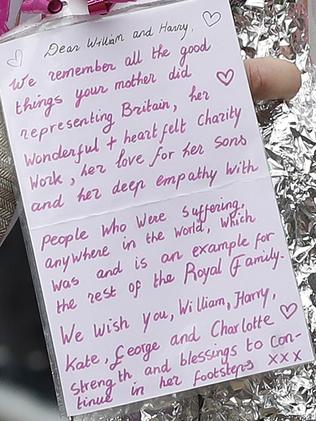 Dear William and Harry,
We remember all the good
things your mother did
representing Britain, her
wonderful + heartfelt charity
work, her love for her sons
and her deep empathy with
people who were suffering,
anywhere in the world, which
was and is an example for
the rest of the Royal Family.
We wish you, William, Harry,
Kate, George and Charlotte
strength and blessings to con-
tinue in her footsteps xxx